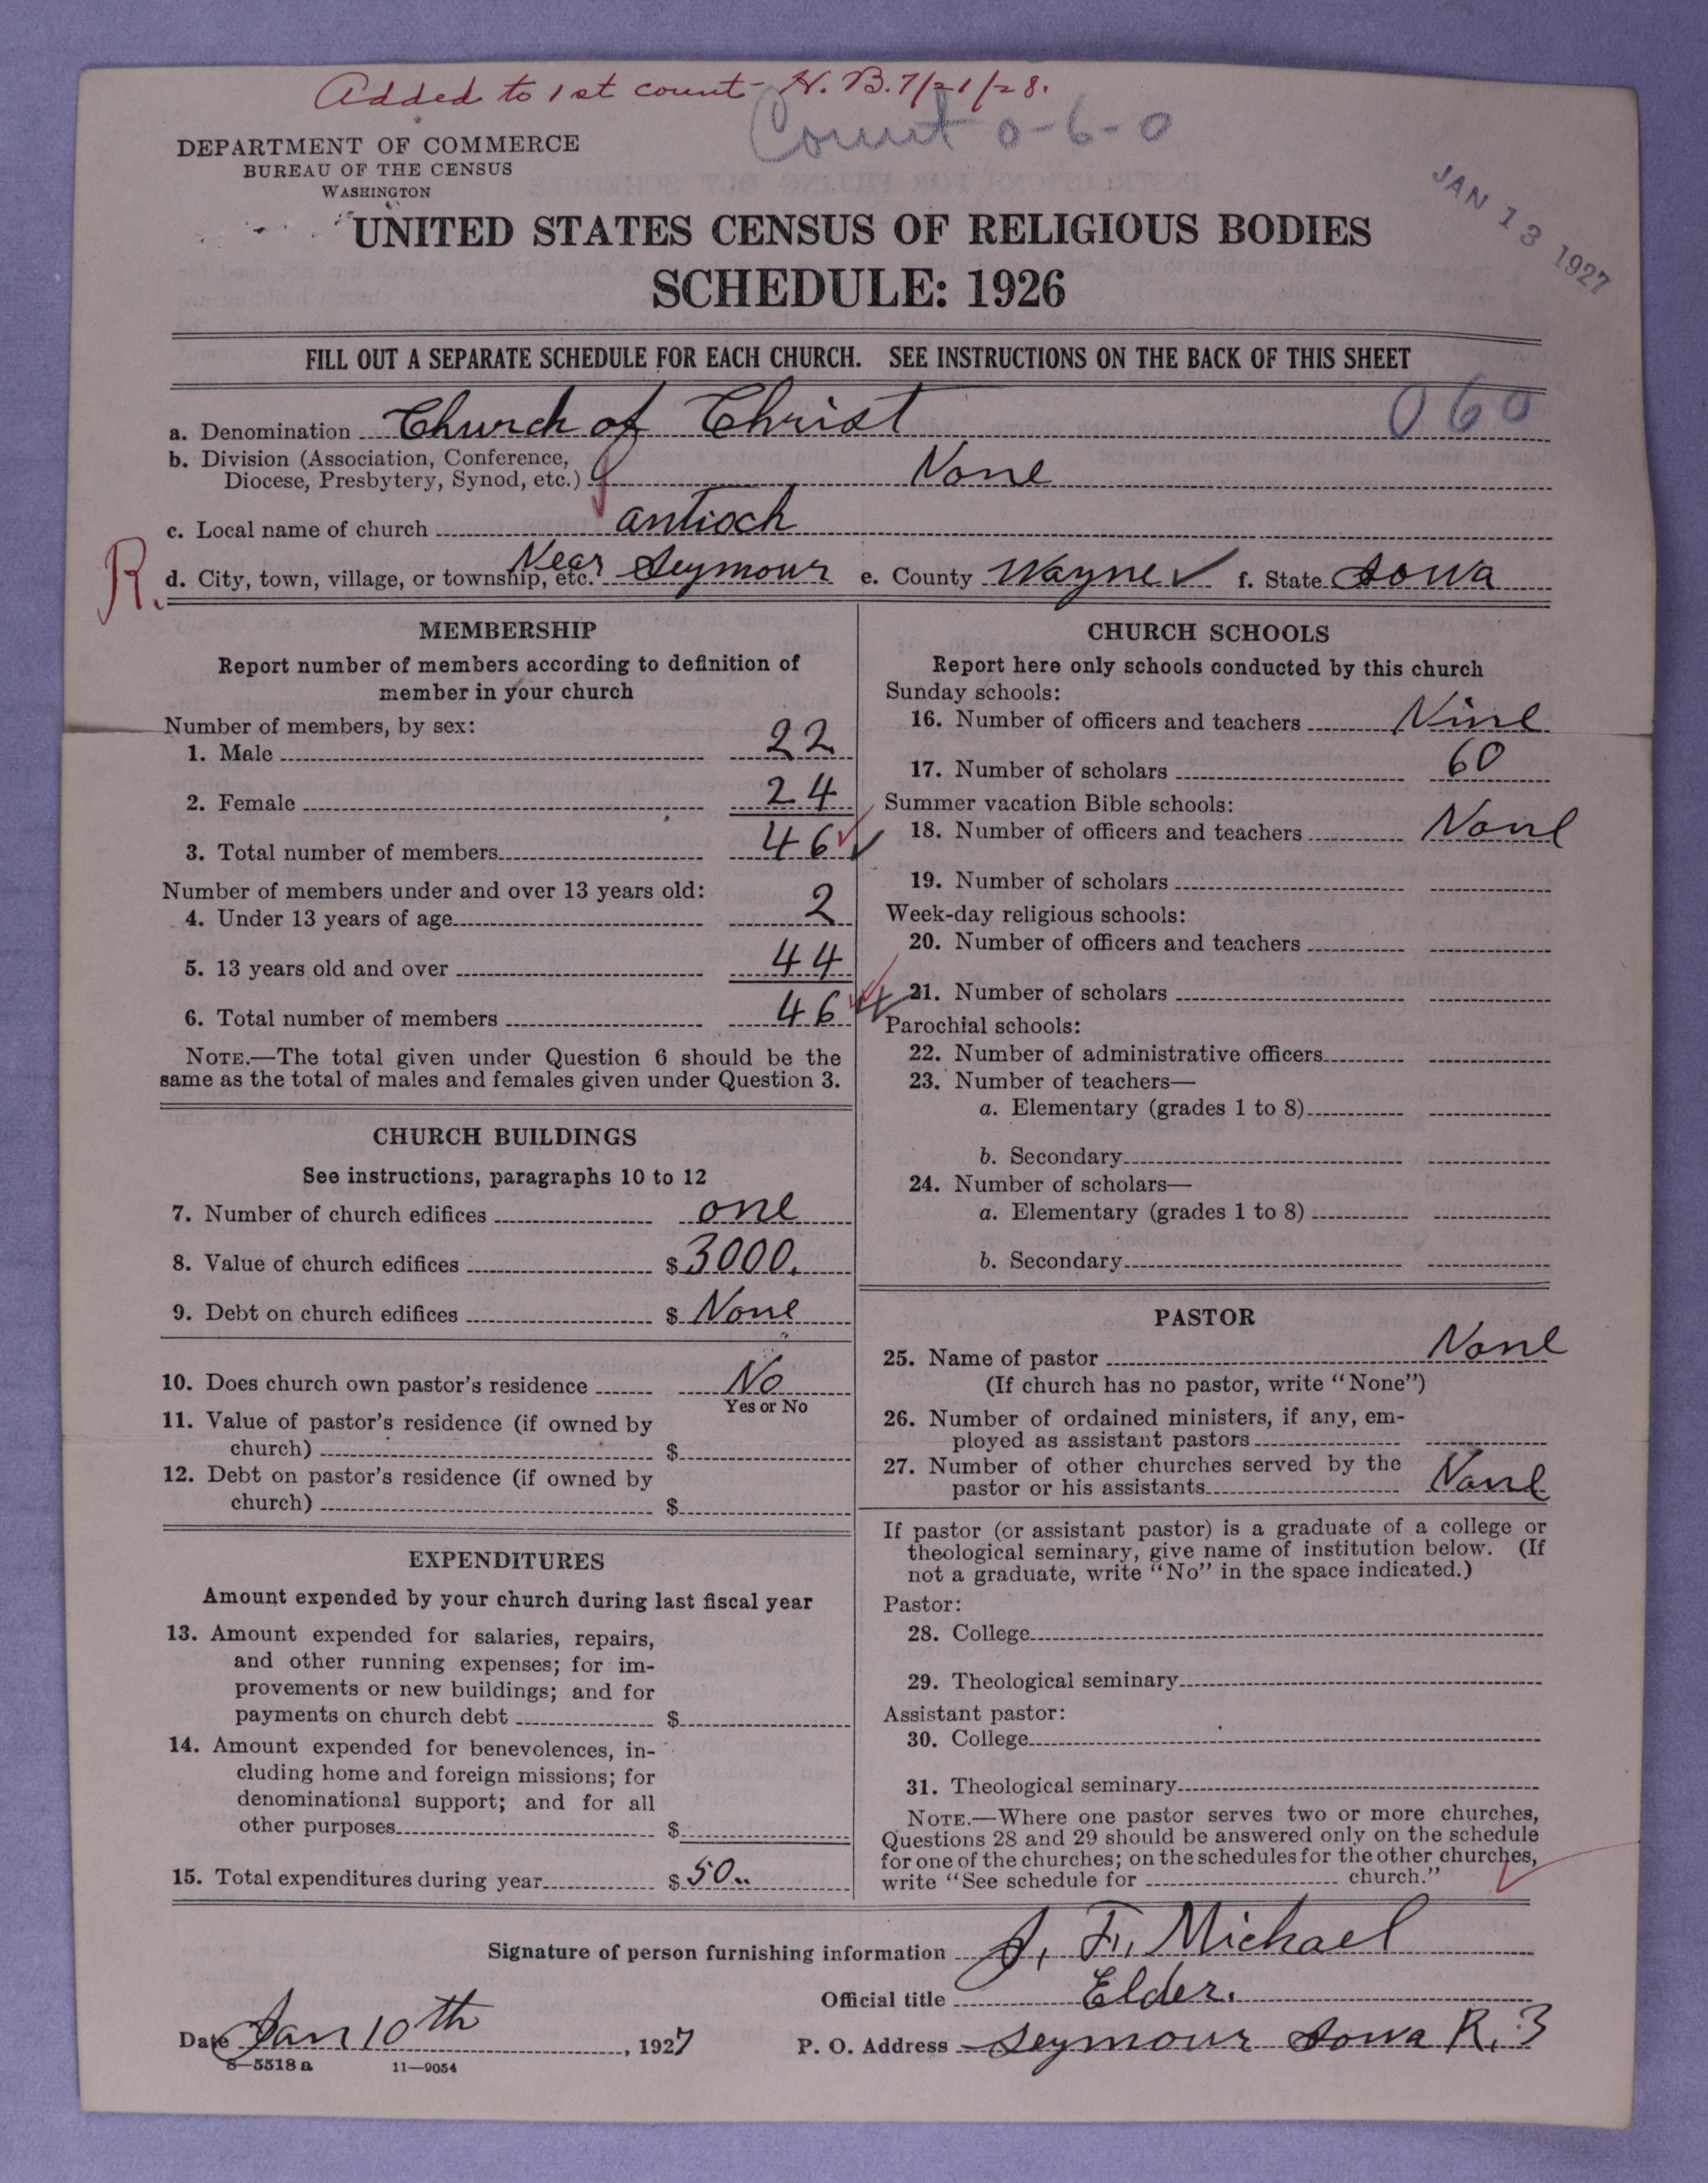 Added to 1st count- H. B. 7/21/28.
Count 0-6-0
DEPARTMENT OF COMMERCE
BUREAU OF THE CENSUS
WASHINGTON
JAN 13 1927
UNITED STATES CENSUS OF RELIGIOUS BODIES
SCHEDULE: 1926
FILL OUT A SEPARATE SCHEDULE FOR EACH CHURCH. SEE INSTRUCTIONS ON THE BACK OF THIS SHEET
a. Denomination Church of Christ 060
b. Division (Association, Conference,
Diocese, Presbytery, Synod, etc.) None
c. Local name of church Antioch
R. d. City, town, village, or township, etc. Near Seymour e. County Wayne f. State Iowa
MEMBERSHIP
Report number of members according to definition of
member in your church
Number of members, by sex:
1. Male 22
2. Female 24
3. Total number of members 46
Number of members under and over 13 years old:
4. Under 13 years of age 2
5. 13 years old and over 44
6. Total number of members 46
NOTE.—The total given under Question 6 should be the
same as the total of males and females given under Question 3.
CHURCH BUILDINGS
See instructions, paragraphs 10 to 12
7. Number of church edifices one
8. Value of church edifices $ 3000.
9. Debt on church edifices $ None
10. Does church own pastor's residence No
Yes or No
11. Value of pastor's residence (if owned by
church) $
12. Debt on pastor's residence (if owned by
church) $
EXPENDITURES
Amount expended by your church during last fiscal year
13. Amount expended for salaries, repairs,
and other running expenses; for im-
provements or new buildings; and for
payments on church debt $
14. Amount expended for benevolences, in-
cluding home and foreign missions; for
denominational support; and for all
other purposes $
15. Total expenditures during year $ 50..
CHURCH SCHOOLS
Report here only schools conducted by this church
Sunday schools:
16. Number of officers and teachers Nine
17. Number of scholars 60
Summer vacation Bible schools:
18. Number of officers and teachers None
19. Number of scholars
Week-day religious schools:
20. Number of officers and teachers
21. Number of scholars
Parochial schools:
22. Number of administrative officers
23. Number of teachers—
a. Elementary (grades 1 to 8)
b. Secondary
24. Number of scholars—
a. Elementary (grades 1 to 8)
b. Secondary
PASTOR
25. Name of pastor None
(If church has no pastor, write "None")
26. Number of ordained ministers, if any, em-
ployed as assistant pastors
27. Number of other churches served by the
pastor or his assistants None
If pastor (or assistant pastor) is a graduate of a college or
theological seminary, give name of institution below. (If
not a graduate, write "No" in the space indicated.)
Pastor:
28. College
29. Theological seminary
Assistant pastor:
30. College
31. Theological seminary
NOTE.—Where one pastor serves two or more churches,
Questions 28 and 29 should be answered only on the schedule
for one of the churches; on the schedules for the other churches,
write "See schedule for church."
Signature of person furnishing information J. F. Michael
Official title Elder.
Date Jan 10th, 1927 P. O. Address Seymour Iowa R. 3
8—5518 a 11—9054